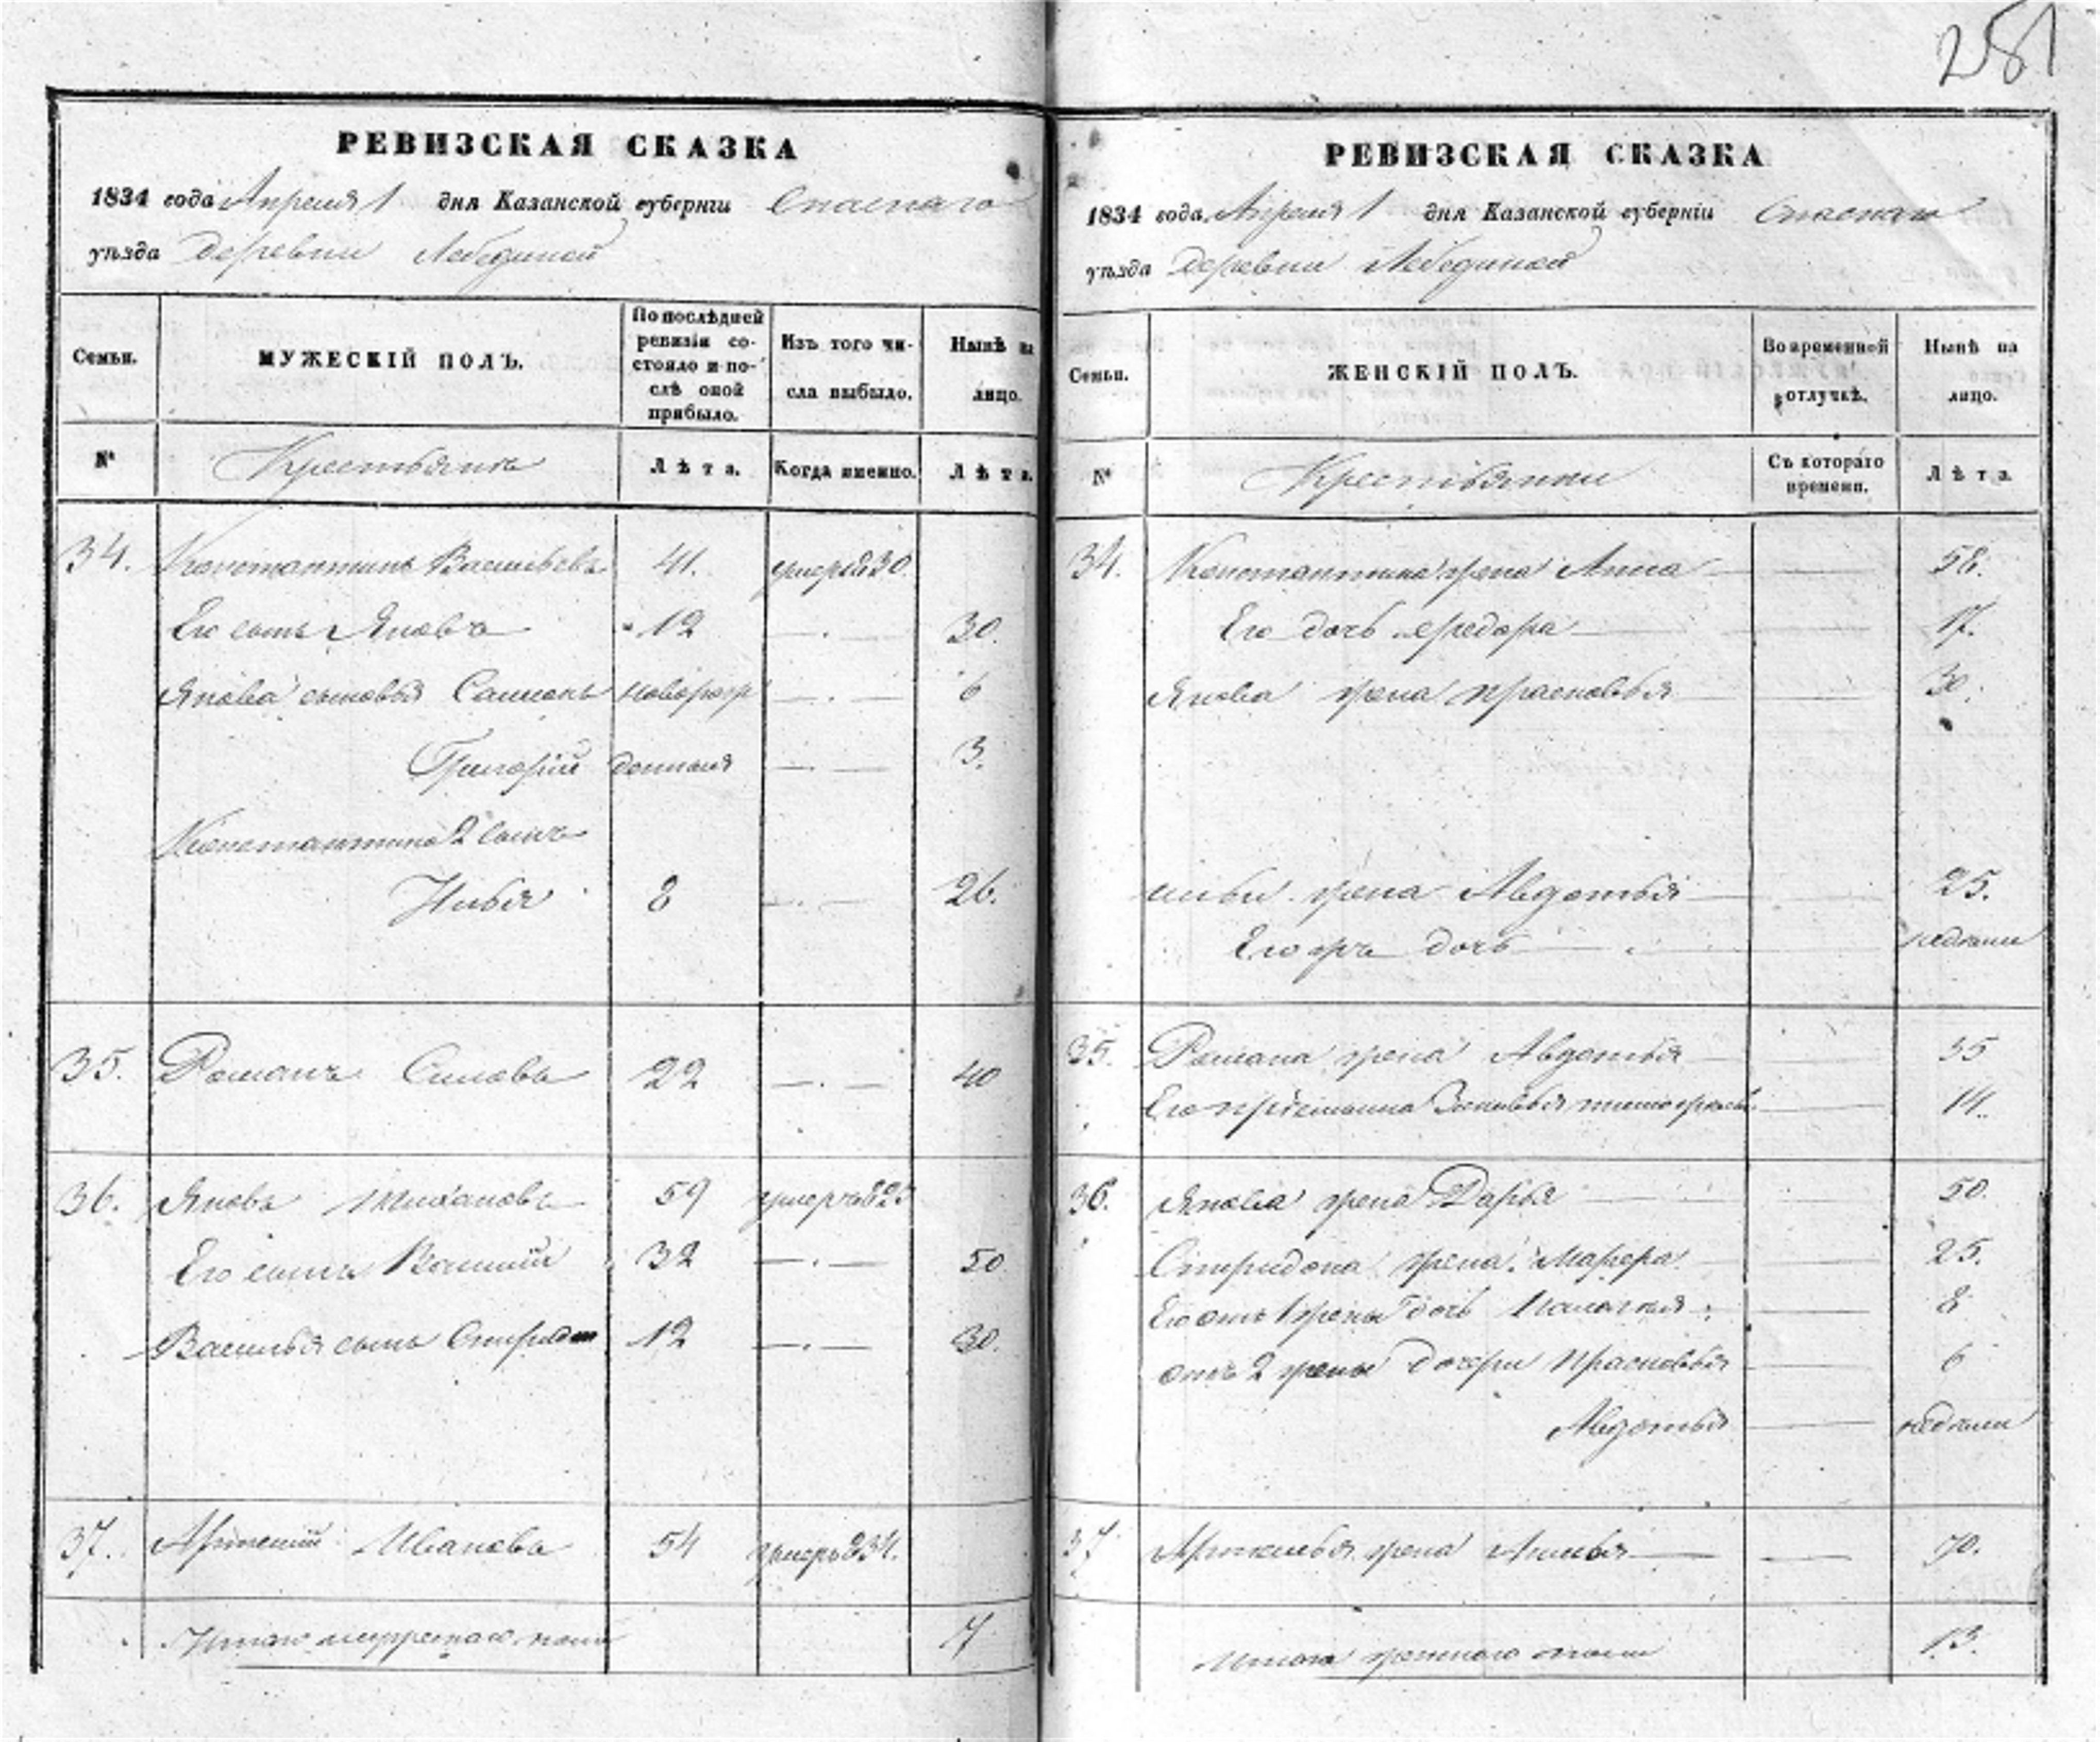 251
РЕВИЗСКАЯ СКАЗКА
1834 года Апреля 1 дня Казанской губернiи Спаскаго
уѣзда деревни Лебединой
Семьи.
МУЖЕСКIЙ ПОЛЪ.
По послѣдней ревизiи состояло и послѣ оной прибыло.
Изъ того числа выбыло.
Нынѣ на лицо.
№
Крестьяне
Лѣта.
Когда именно.
Лѣта.
34. Константинъ Васильевъ 41. умеръ 830.
Его сынъ Яковъ 12 30.
Якова сыновья Самсонъ новорож 6
Григорiй денныя 3.
Константина 2 сынъ
Илья 8 26.
35. Романъ Силовъ 22 40
36. Яковъ 59 умеръ 825
Его сынъ Василiй 32 50
Василья сынъ Спиридон 12 30.
37. Ивановъ 54 умеръ 834.
Итого мужескаго пола 7
РЕВИЗСКАЯ СКАЗКА
1834 года Апреля 1 дня Казанской губернiи Спаскаго
уѣзда деревни Лебединой
Семьи.
ЖЕНСКIЙ ПОЛЪ.
Во временной отлучкѣ.
Нынѣ на лицо.
№
Крестьянки
Съ котораго времени.
Лѣта.
34. Константина жена Анна 58.
Его дочь Федора 17.
Якова жена Прасковья 30.
Ильи жена Авдотья 25.
Его жъ дочь недели
35. Романа жена Авдотья 35
Его Зиновья 14.
36. Якова жена Дарья 50.
Спиридона жена Марфа 25.
Его отъ 1 жены дочь Пелагея 8
отъ 2 жены дочери Прасковья 6
Авдотья недели
37 жена 70.
Итого женского пола 13.